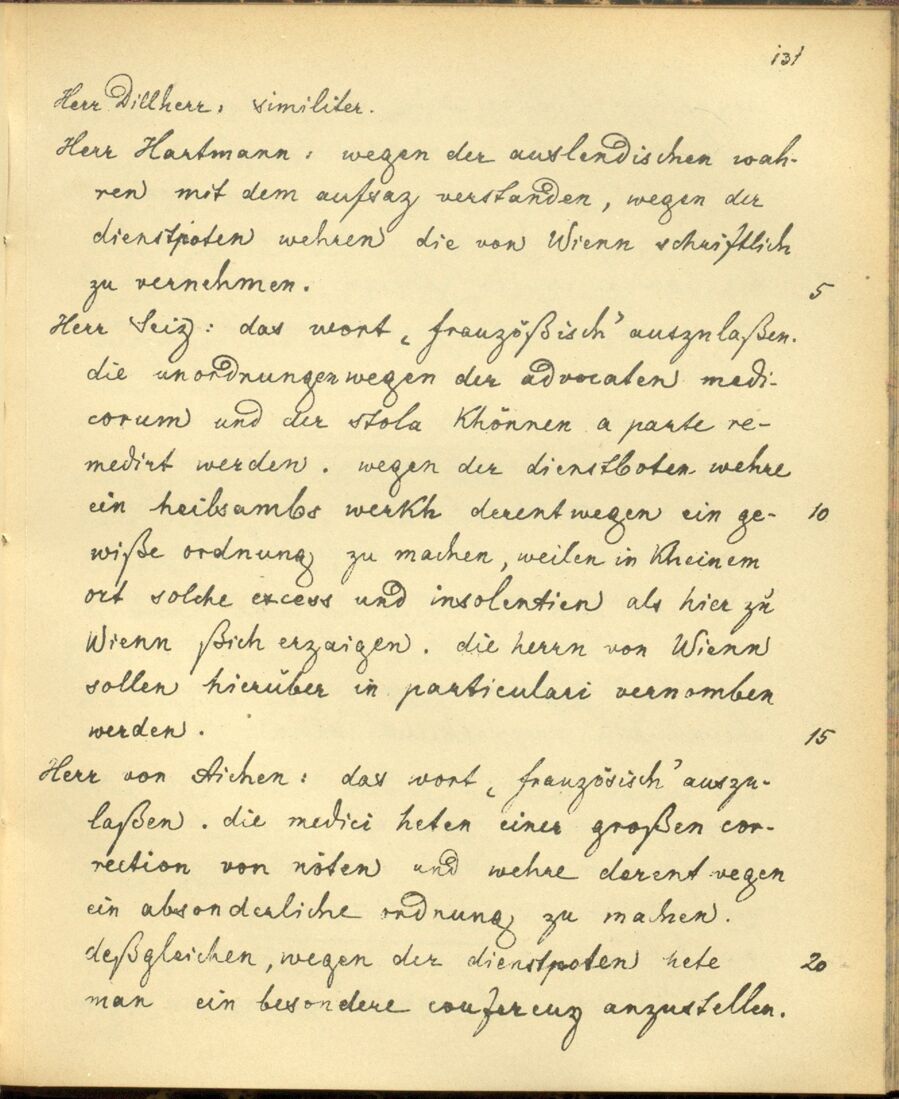 131
Herr Dillherr: similiter.
Herr Hartmann: wegen der auslendischen wah-
ren mit dem aufsaz verstanden, wegen der
dienstpoten wehren die von Wienn schriftlich
zu vernehmen. 5
Herr Seiz: das wort „französßisch” auszulaßen.
die unordnungen wegen der advocaten medi-
corum und der stola khönnen a parte re-
medirt werden. wegen der dienstboten wehre
ein heilsambs werkh derentwegen ein ge- 10
wiße ordnung zu machen, weilen in kheinem
ort solche excess und insolentien als hier zu
Wienn ßich erzaigen. die herrn von Wienn
sollen hierüber in particulari vernomben
werden. 15
Herr von Aichen: das wort „französisch” auszu-
laßen. die medici heten einer großen cor-
rection von nöten und wehre derentwegen
ein absonderliche ordnung zu machen.
deßgleichen, wegen der dienstpoten hete 20
man ein besondere conferenz anzustellen.